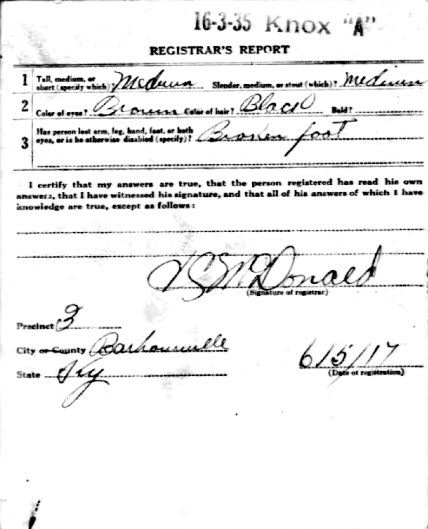 16-3-35 Knox "A"
REGISTRAR'S REPORT
1 Tall, medium, or short (specify which)? Medium Slender, medium, or stout (which)? Medium
2 Color of eyes? Brown Color of hair? Black Bald?
3 Has person lost arm, leg, hand, foot, or both eyes, or is he otherwise disabled (specify)? Broken foot
I certify that my answers are true, that the person registered has read his own
answers, that I have witnessed his signature, and that all of his answers of which I have
knowledge are true, except as follows:
McDonald
(Signature of registrar)
Precinct 3
City or County Barbourville
State Ky
6/5/17
(Date of registration)